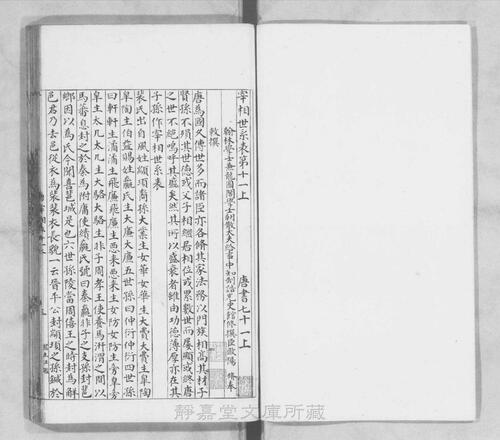 宰相世系表第十一上　唐書七十一上
翰林學士兼龍圖閣學士朝散大夫給事中知制誥充史館修撰臣歐陽　脩奉
敕撰
唐為國久傳世多而諸臣亦各脩其家法務以門族相高其材子
賢孫不殞其世德或父子相繼居相位或累數世而屢顯或終唐
之世不絕嗚呼其亦盛矣然其所以盛衰者雖由功德薄厚亦在其
子孫作宰相世系表
裴氏出自風姓顓頊裔孫大業生女華女華生大費大費生皋陶
皋陶生伯益賜姓嬴氏生大廉大廉五世孫曰仲衍仲衍四世孫
曰軒軒生潏潏生飛廉飛廉生惡來惡來生女防女防生旁皋旁
皋生太几太几生大駱大駱生非子周孝王使養馬汧渭之間以
馬蕃息封之於秦為附庸使續嬴氏號曰秦嬴非子之支孫封䔇
鄉因以為氏今聞喜䔇城是也六世孫陵當周僖王之時封為解
邑君乃去邑從衣為裴裴衣長貌一云晉平公封顓頊之孫鍼於
靜嘉堂文庫所藏